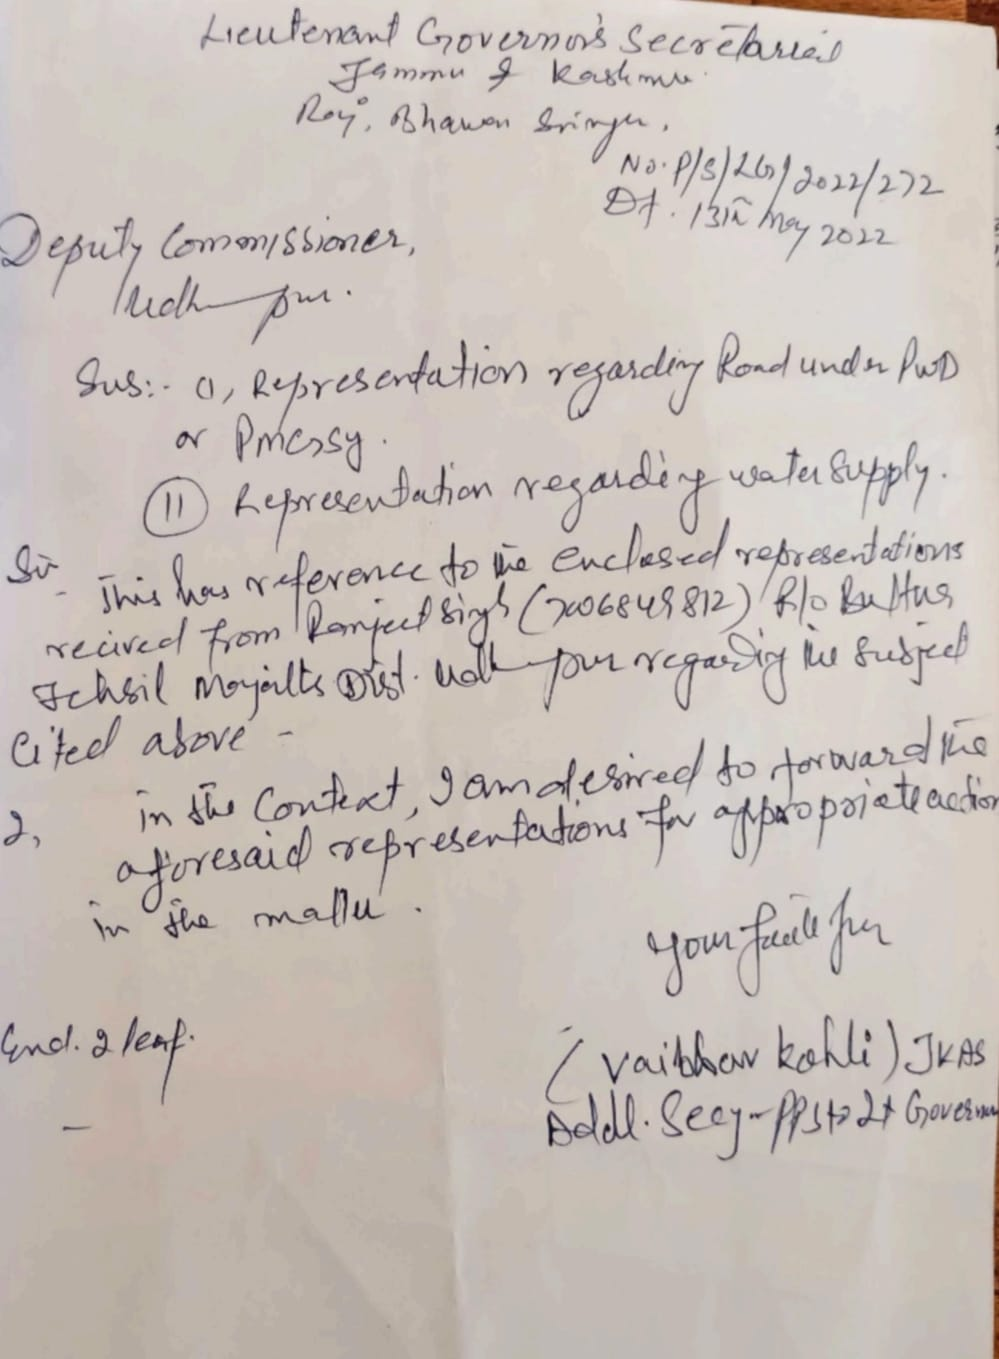 Lieutenant Governor's Secretariat
Jammu & Kashmir
Raj, Bhawan Srinagar,
No. P/S/LG/2022/272
Dt. 13th May 2022
Deputy Commissioner,
Udhampur.
Sub:- (I), Representation regarding Road under PWD
or PMGSY.
(II) Representation regarding water supply.
Sir
This has reference to the enclosed representations
recived from Ranjeet Singh (7006849812) R/o
Tehsil Majalta Dist. Udhampur regarding the subject
cited above -
2, in the Context, I am desired to forward the
aforesaid representations for appropriate action
in the matter.
Your faithfully
Encl. 2 leaf.
(Vaibhav Kohli) JKAS
Addl. Secy - PPS to Lt Governor